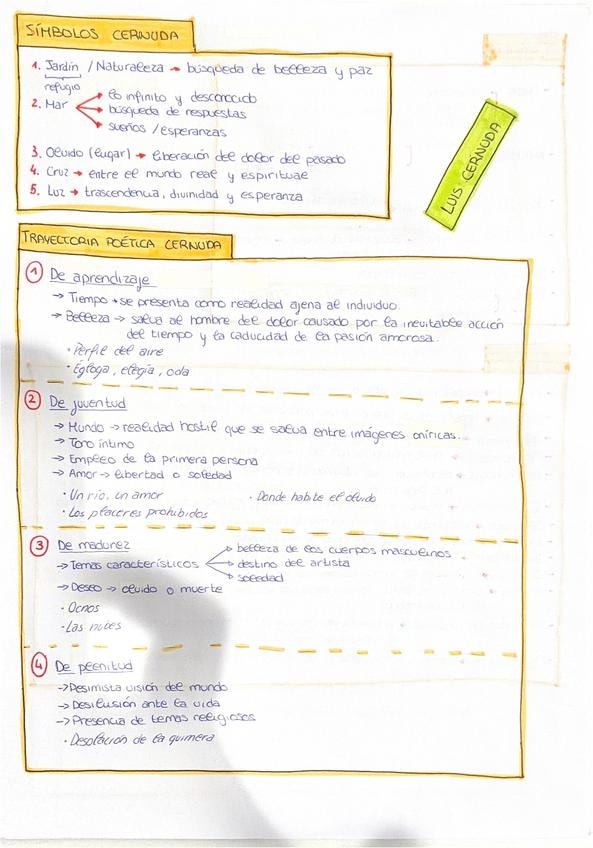 SÍMBOLOS CERNUDA
1. Jardín / Naturaleza → búsqueda de belleza y paz
refugio
2. Mar → lo infinito y desconocido
→ búsqueda de respuestas
→ sueños / esperanzas
3. Olvido (lugar) → liberación del dolor del pasado
4. Cruz → entre el mundo real y espiritual
5. Luz → trascendencia, divinidad y esperanza
LUIS CERNUDA
TRAYECTORIA POÉTICA CERNUDA
1 De aprendizaje
→ Tiempo → se presenta como realidad ajena al individuo.
→ Belleza → salva al hombre del dolor causado por la inevitable acción
del tiempo y la caducidad de la pasión amorosa.
· Perfil del aire
· Égloga, elegía, oda
2 De juventud
→ Mundo → realidad hostil que se salva entre imágenes oníricas.
→ Tono íntimo
→ Empleo de la primera persona
→ Amor → libertad o soledad
· Un río, un amor · Donde habite el olvido
· Los placeres prohibidos
3 De madurez
→ Temas característicos → belleza de los cuerpos masculinos
→ destino del artista
→ soledad
→ Deseo → olvido o muerte
· Ocnos
· Las nubes
4 De plenitud
→ Pesimista visión del mundo
→ Desilusión ante la vida
→ Presencia de temas religiosos
· Desolación de la quimera